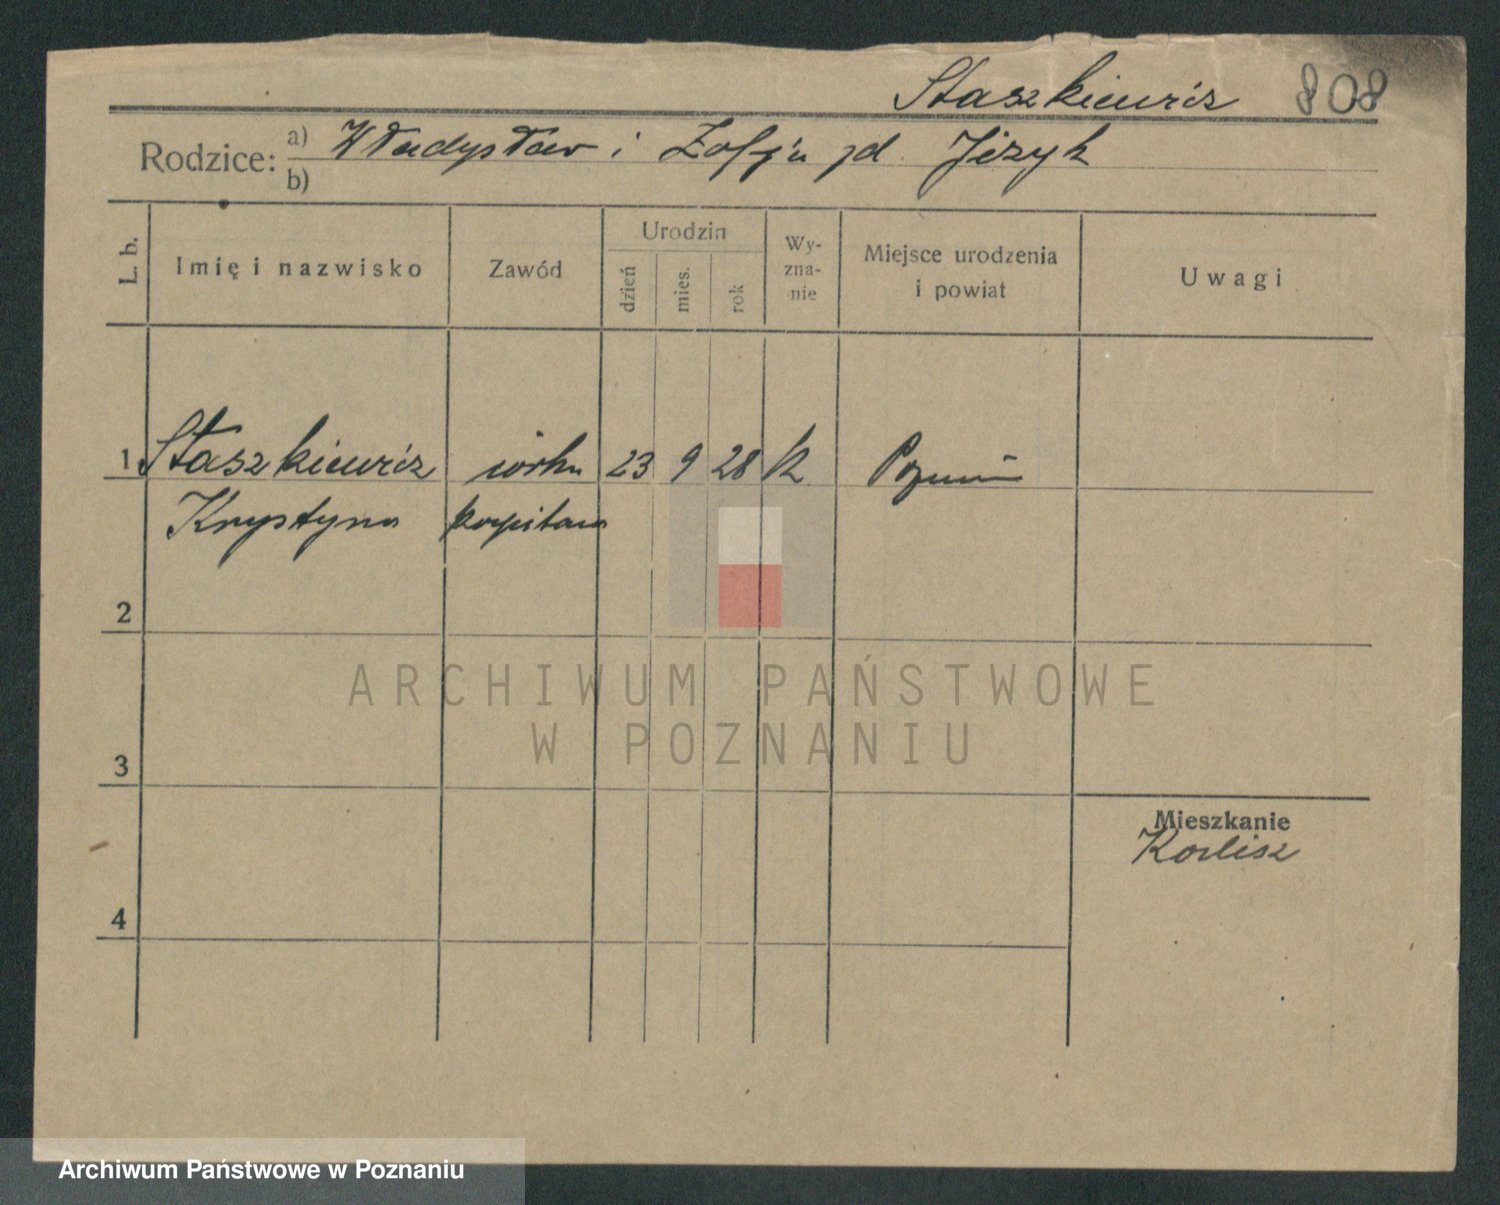 Staszkiewicz 808
Rodzice: a) Władysław i Zofja zd. Jeżyk
b)
L. b.
Imię i nazwisko
Zawód
Urodzin
dzień
mies.
rok
Wy-
zna-
nie
Miejsce urodzenia
i powiat
Uwagi
1 Staszkiewicz córka 23 9 28 k Poznań
Krystyna kapitana
2
ARCHIWUM PAŃSTWOWE
W POZNANIU
3
Mieszkanie
4
Archiwum Państwowe w Poznaniu